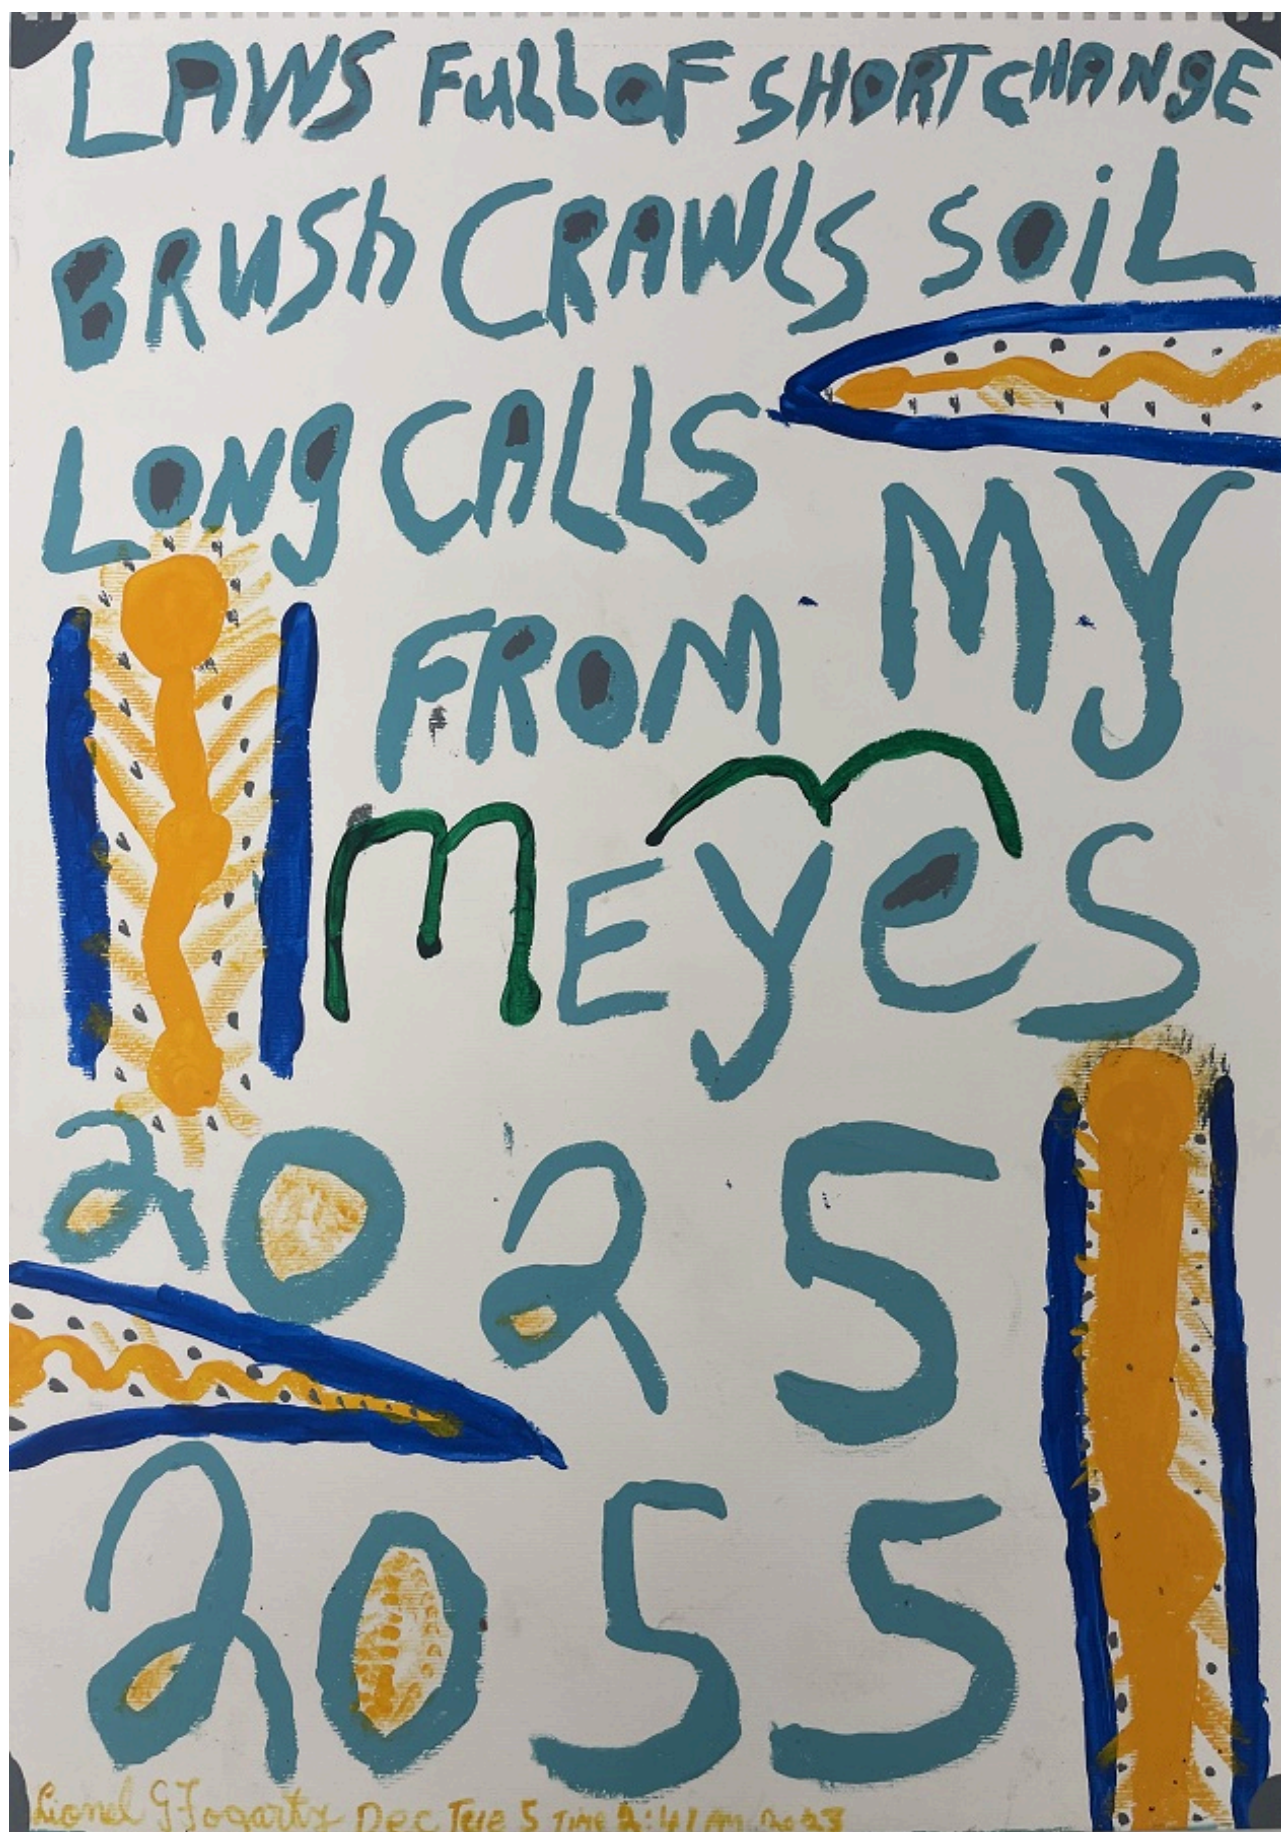 LAWS FULL OF SHORT CHANGE
BRUSh CRAWLS SOiL
LONg CALLS
FROM MY
mEyeS
2025
2055
Lionel G Fogarty Dec Tue 5 TIME 2:41 AM 2023